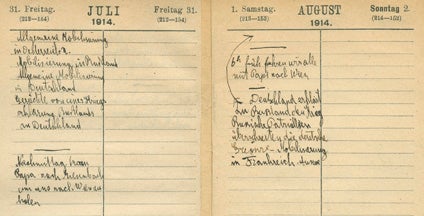 31. Freitag.
(212—154)
JULI
1914.
Freitag 31.
(212—154)
Allgemeine Mobilisierung
in Oesterreich.
Mobilisierung in Russland
Allgemeine Mobilisierung
in Deutschland
Gerüchte von einer Kriegs
erklärung Russlands
an Deutschland
Nachmittag kam
Papa nach
um uns nach Wien zu
holen
1. Samstag.
(213—153)
AUGUST
1914.
Sonntag 2.
(214—152)
6h früh fahren wir alle
mit Papa nach Wien
Deutschland erklärt
Russland den Krieg
Russische Patrouillen
überschreiten die deutsche
Grenze. Mobilisierung
in Frankreich